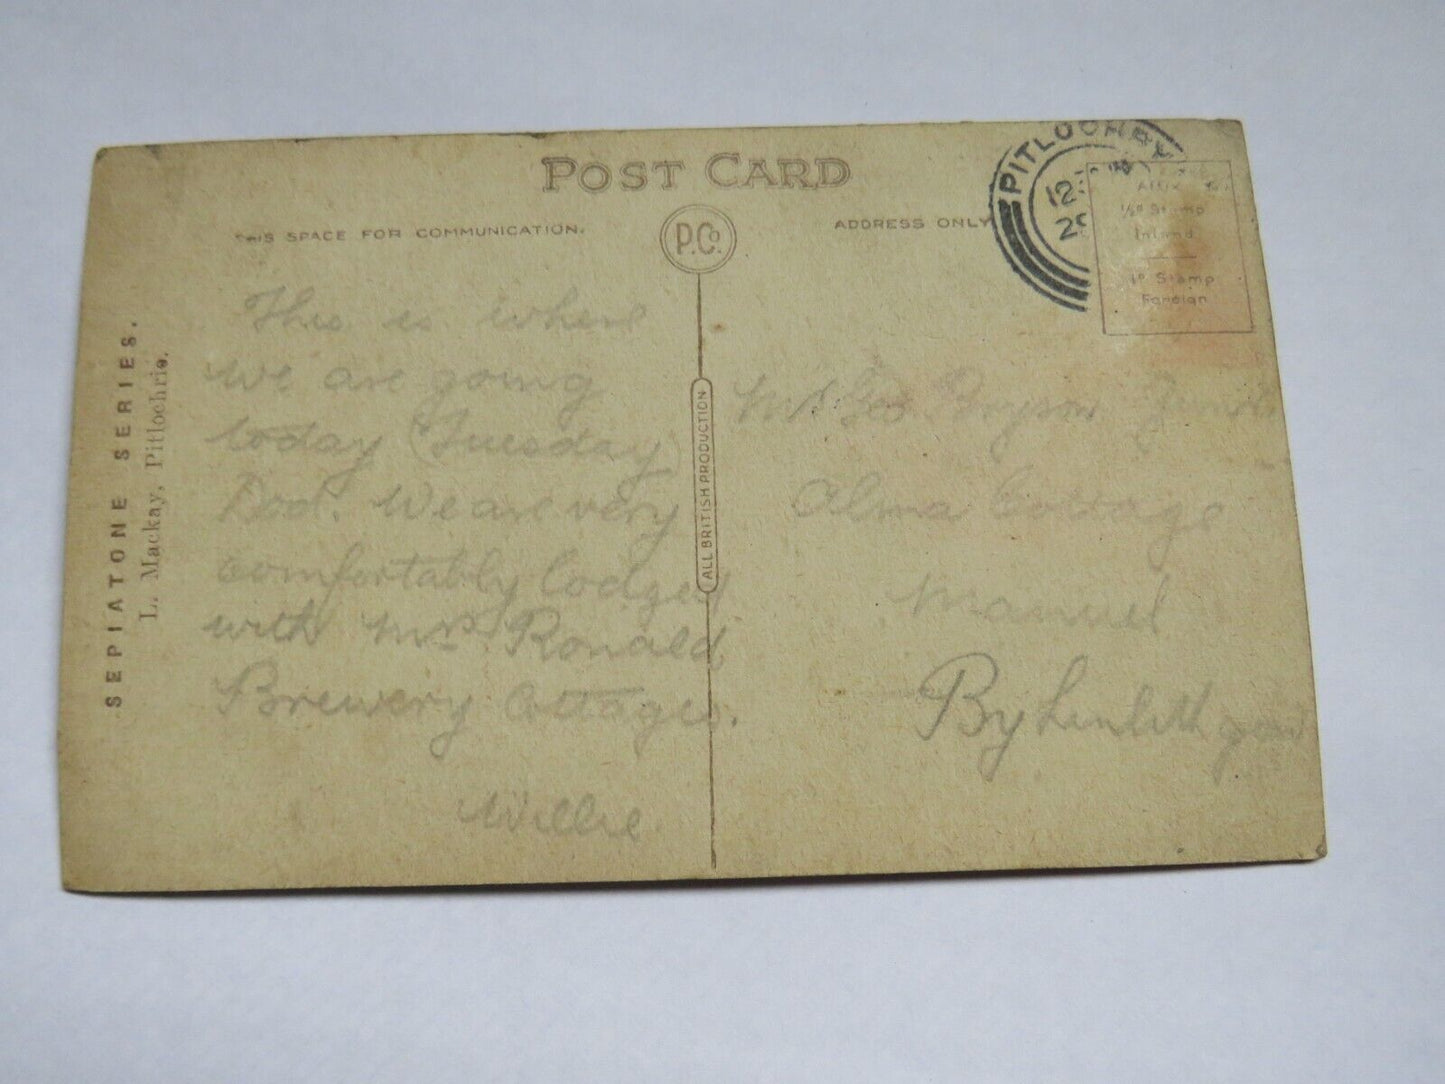 POST CARD
THIS SPACE FOR COMMUNICATION.
P.Co.
ADDRESS ONLY
PITLOCHRY
12
29
½D Stamp
Inland
1D Stamp
Foreign
SEPIATONE SERIES.
L. Mackay, Pitlochrie.
ALL BRITISH PRODUCTION
This is where
we are going
today (Tuesday)
Dod. We are very
comfortably lodged
with Mrs Ronald,
Brewery Cottages.
Willie
Mr Geo Bryson Junior
Alma Cottage
Manuel
By Linlithgow